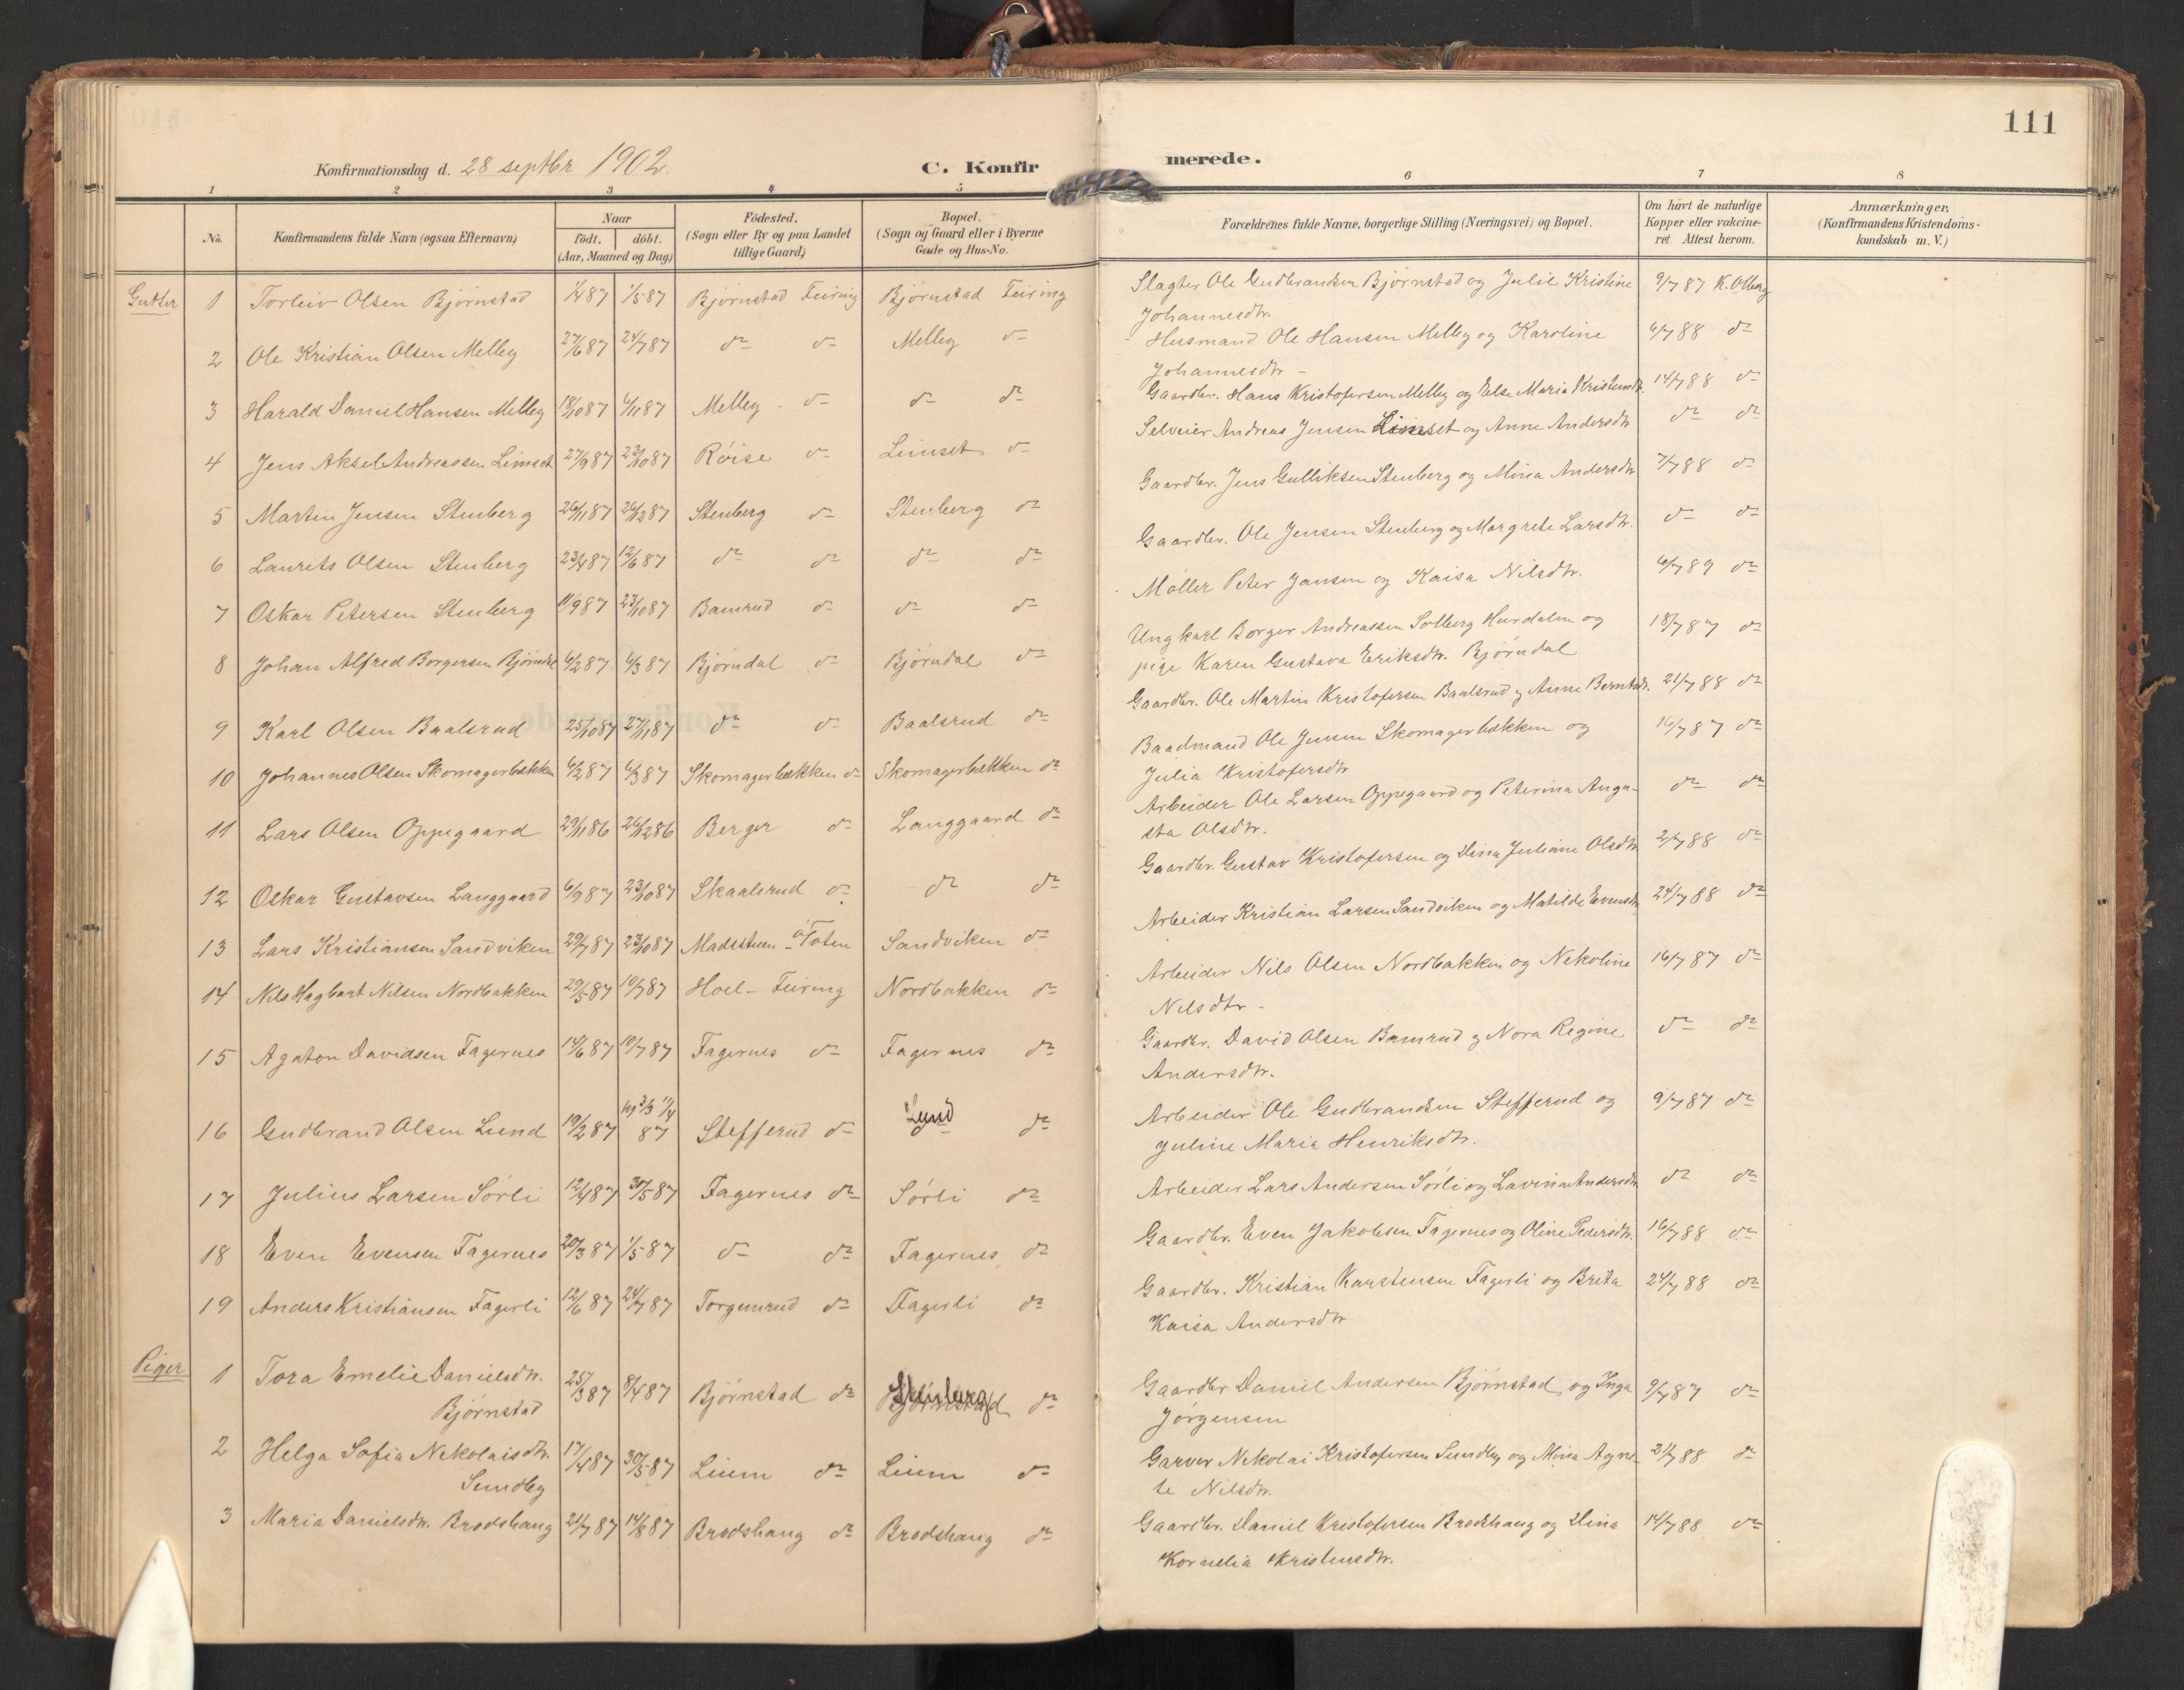 111
Konfirmationsdag d. 28 septbr 1902.
C. Konfirmerede.
1 2 3 4 5 6 7 8
No.
Konfirmandens fulde Navn (ogsaa Efternavn)
Naar
födt. döbt.
(Aar, Maaned og Dag)
Födested.
(Sogn eller By og paa Landet
tillige Gaard)
Bopæl.
(Sogn og Gaard eller i Byerne
Gade og Hus-No.
Forældrenes fulde Navne, borgerlige Stilling (Næringsvei) og Bopæl.
Om havt de naturlige
Kopper eller vakcine-
ret. Attest herom.
Anmærkninger.
(Konfirmandens Kristendoms-
kundskab m. V.)
Gutter 1 Torleiv Olsen Bjørnstad 1/4 87 1/5 87 Bjørnstad Feiring Bjørnstad Feiring Slagter Ole Gudbrandsen Bjørnstad og Julie Kristine 9/7 87 K. Olberg
Johannesdtr.
2 Ole Kristian Olsen Melby 27/6 87 24/7 87 do do Melby do Husmand Ole Hansen Melby og Karoline 4/7 88 do
Johannesdtr
3 Harald Daniel Hansen Melby 18/10 87 6/11 87 Melby do do do Gaardbr. Hans Kristofersen Melby og Else Maria Kristensdtr. 14/7 88 do
4 Jens Aksel Andreassen Limset 27/9 87 23/10 87 Røise do Limset do Selveier Andreas Jensen Limset og Anne Andersdtr do do
5 Martin Jensen Stenberg 26/11 87 26/12 87 Stenberg do Stenberg do Gaardbr. Jens Gulliksen Stenberg og Mina Andersdtr 7/7 88 do
6 Laurits Olsen Stenberg 23/4 87 12/6 87 do do do do Gaardbr. Ole Jensen Stenberg og Margrete Larsdtr. do do
7 Oskar Petersen Stenberg 11/9 87 23/10 87 Bamrud do do do Møller Peter Jansen og Kaisa Nilsdtr. 6/7 89 do
8 Johan Alfred Borgersen Bjørndal 6/2 87 6/3 87 Bjørndal do Bjørndal do Ungkarl Borger Andreassen Solberg Hurdalen og 18/7 87 do
pige Karen Gustava Eriksdtr. Bjørndal
9 Karl Olsen Baalsrud 25/10 87 27/11 87 do do Baalsrud do Gaardbr. Ole Martin Kristofersen Baalsrud og Anne Berntsdtr. 21/7 88 do
10 Johannes Olsen Skomagerbækken 6/2 87 6/3 87 Skomagerbækken do Skomagerbækken do Baadmand Ole Jensen Skomagerbækken og 16/7 87 do
Julia Kristofersdtr
11 Lars Olsen Oppegaard 29/11 86 26/12 86 Berger do Langgaard do Arbeider Ole Larsen Oppegaard og Peterina Augu- do do
sta Olsdtr.
12 Oskar Gustavsen Langgaard 6/9 87 23/10 87 Skaalsrud do do do Gaardbr. Gustav Kristofersen og Dina Juliane Olsdtr 2/7 88 do
13 Lars Kristiansen Sandviken 29/7 87 23/10 87 Madssteen - ø Toten Sandviken do Arbeider Kristian Larsen Sandviken og Matilde Evensdtr. 24/7 88 do
14 Nils Hagbart Nilsen Nordbakken 29/5 87 10/7 87 Hoel - Feiring Nordbakken do Arbeider Nils Olsen Nordbakken og Nekoline 16/7 87 do
Nilsdtr -
15 Agaton Davidsen Fagernes 14/6 87 10/7 87 Fagernes do Fagernes do Gaardbr. David Olsen Bamrud og Nora Regine do do
Andersdtr.
16 Gudbrand Olsen Lund 19/2 87 3/3 11/4 87 Stefferud do Lund do Arbeider Ole Gudbrandsen Stefferud og 9/7 87 do
Juline Maria Henriksdtr.
17 Julius Larsen Sørli 12/4 87 30/5 87 Fagernes do Sørli do Arbeider Lars Andersen Sørli og Lavina Andersdtr do do
18 Even Evensen Fagernes 20/3 87 1/5 87 do do Fagernes do Gaardbr. Even Jakobsen Fagernes og Oline Pedersdtr. 16/7 88 do
19 Anders Kristiansen Fagerli 12/6 87 24/7 87 Torgunrud do Fagerli do Gaardbr. Kristian Karstensen Fagerli og Brita 24/7 88 do
Kaisa Andersdtr
Piger 1 Tora Emelie Danielsdtr. 25/3 87 8/4 87 Bjørnstad do Stenberg do Gaardbr Daniel Andersen Bjørnstad og Inga 9/7 87 do
Bjørnstad Jørgensen
2 Helga Sofia Nekolaisdtr. 17/4 87 30/5 87 Liem do Liem do Garver Nekolai Kristofersen Sundby og Mina Agne- 21/7 88 do
Sundby te Nilsdtr.
3 Maria Danielsdtr. Brodshaug 21/7 87 14/8 87 Brodshaug do Brodshaug do Gaardbr. Daniel Kristofersen Brodshaug og Dina 14/7 88 do
Kornelia Kristensdtr.